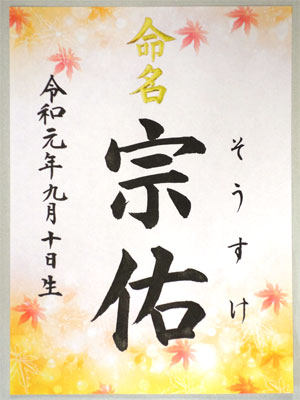 命名
そうすけ
宗佑
令和元年九月十日生